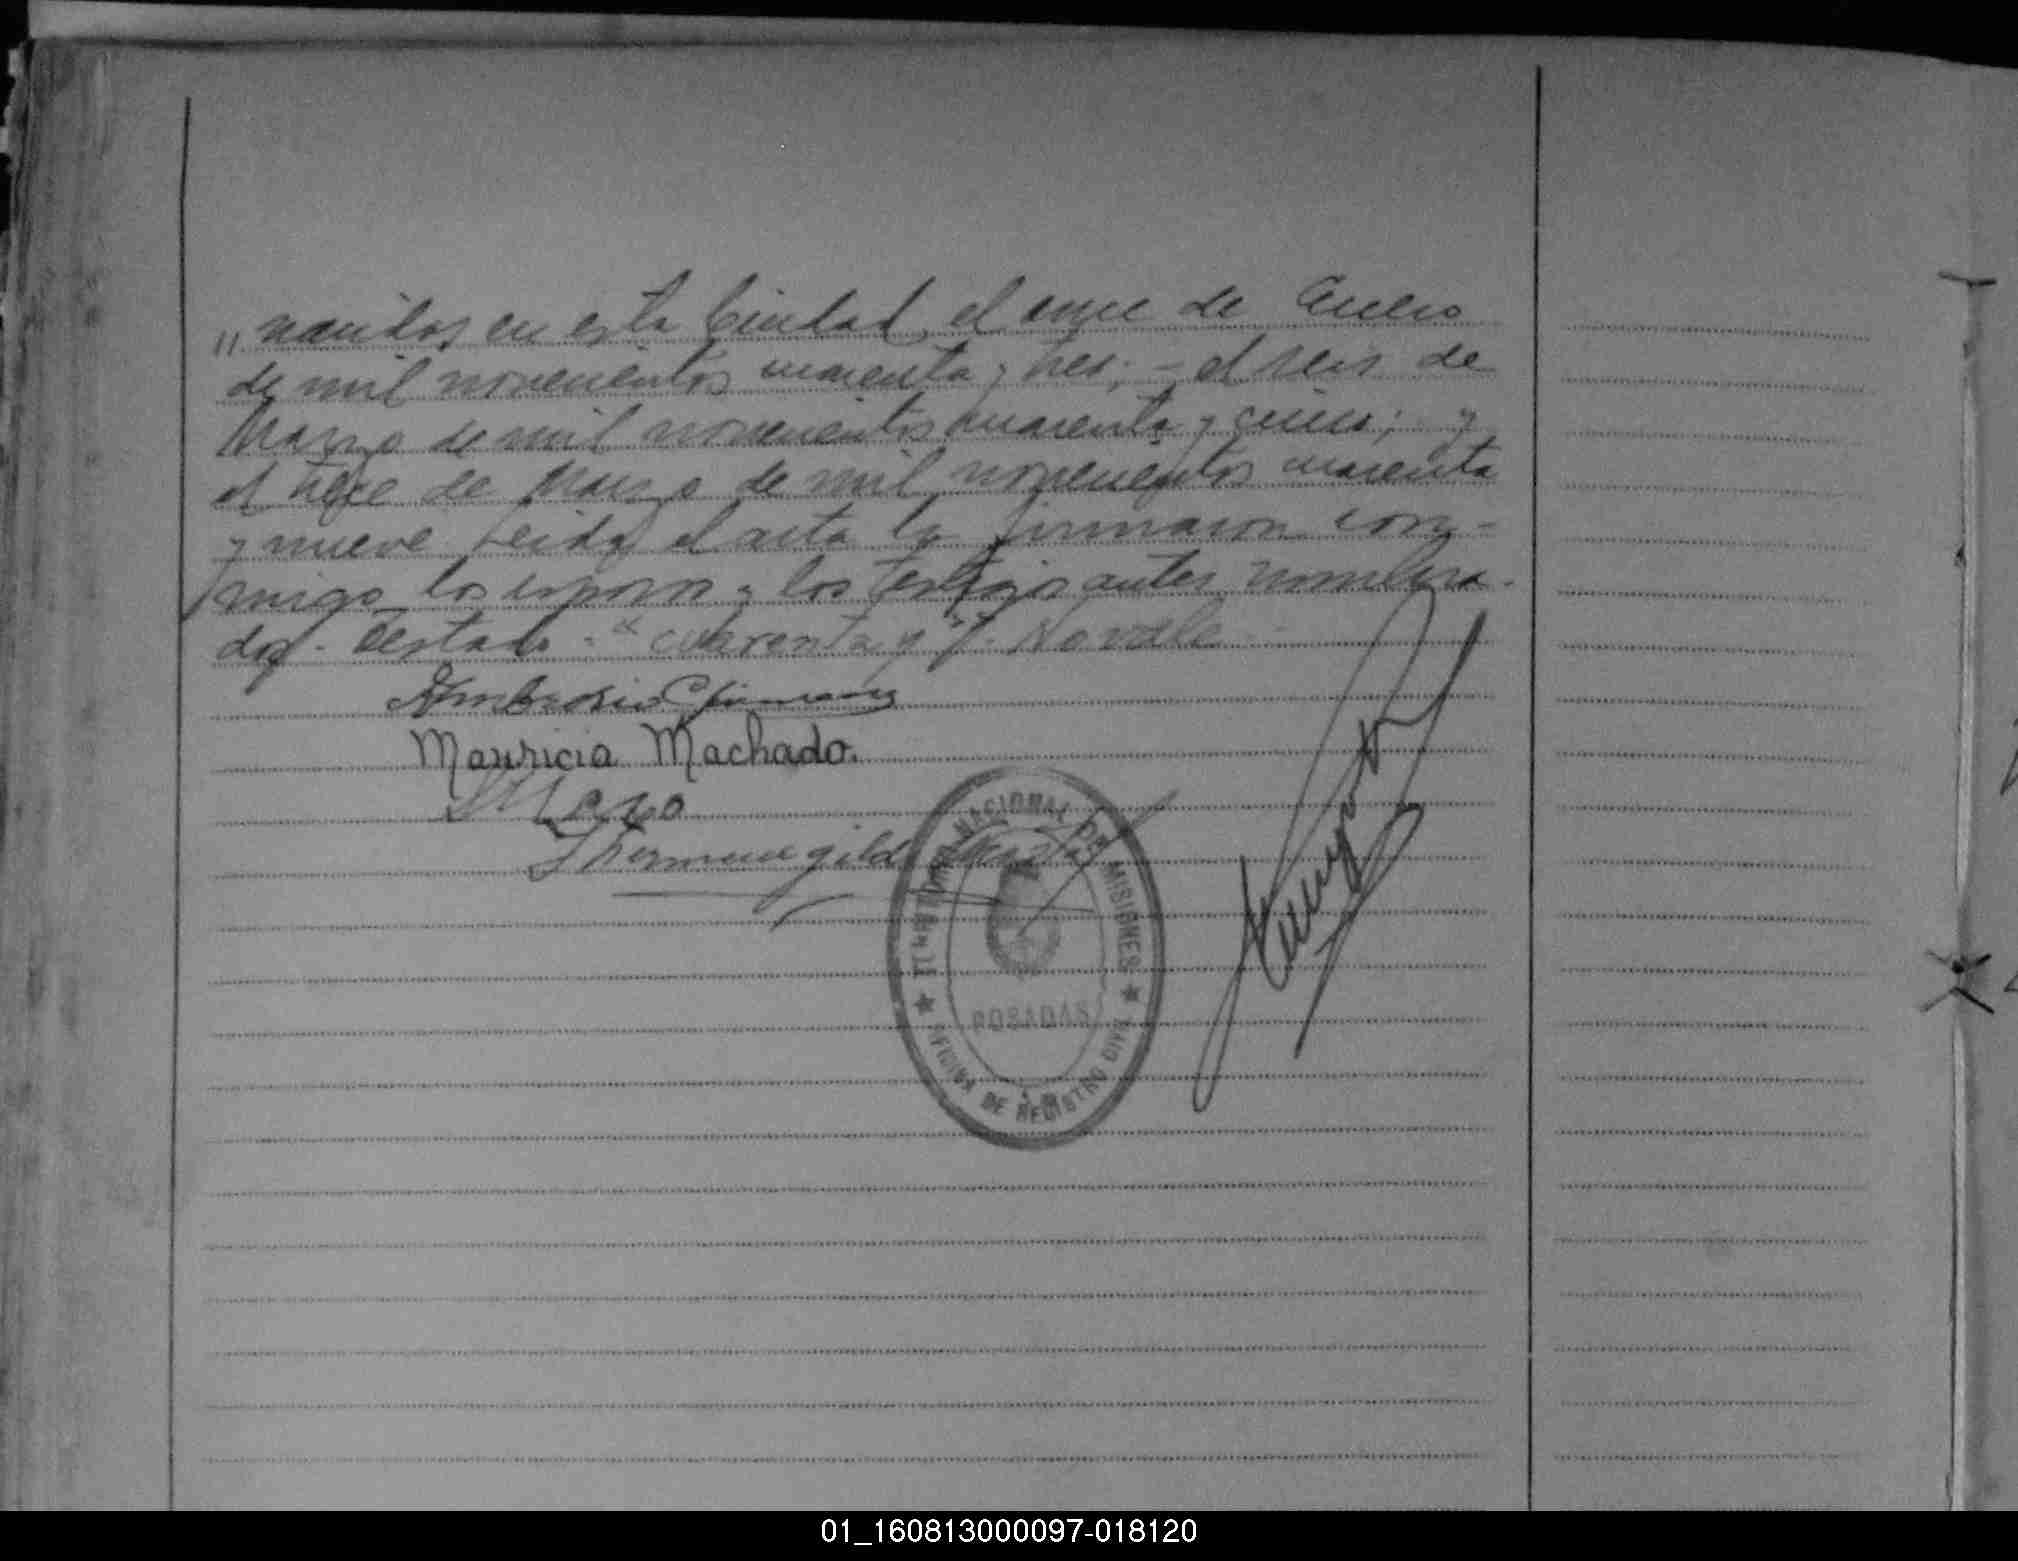 " nacidos en esta Ciudad, el once de Enero
de mil novecientos cuarenta y tres; - el seis de
Marzo de mil novecientos cuarenta y cinco; y
el trece de Marzo de mil novecientos cuarenta
y nueve Leida el acta la firmaron con-
migo los esposos y los testigos antes nombra-
dos. Testado: "cuarenta y". No vale
Ambrosio
Mauricia Machado.
Hermenegildo
NACIONAL DE MISIONES
POSADAS
OFICINA DE REGISTRO CIVIL
01_160813000097-018120